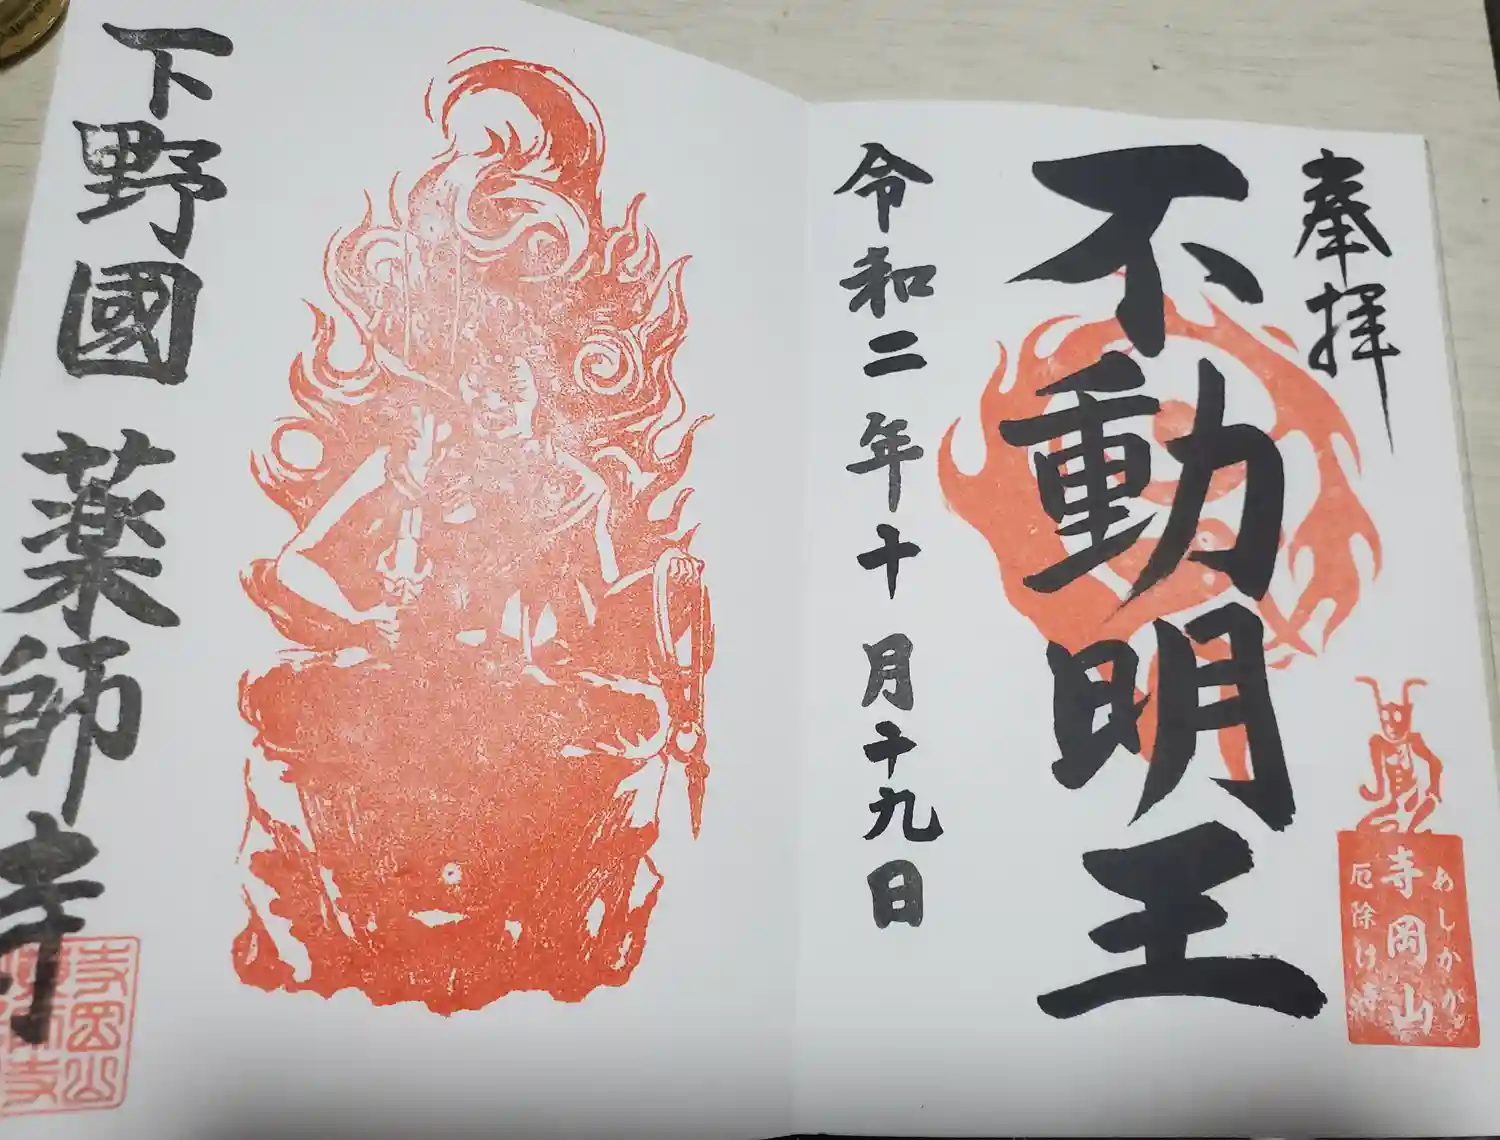 奉拝
不動明王
令和二年十月十九日
あしかが
寺岡山
厄除け
下野國 薬師寺
寺岡山
薬師寺